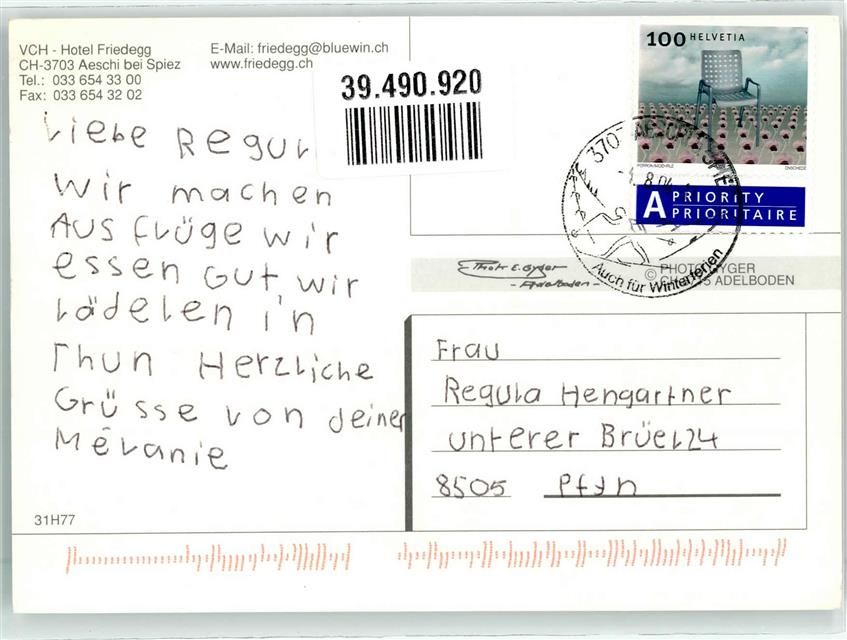 VCH - Hotel Friedegg
CH-3703 Aeschi bei Spiez
Tel.: 033 654 33 00
Fax: 033 654 32 02
E-Mail: friedegg@bluewin.ch
www.friedegg.ch
39.490.920
100 HELVETIA
A PRIORITY
PRIORITAIRE
Auch für Winterferien
Photo E. Gyger
- Adelboden -
© PHOTO GYGER
ADELBODEN
Liebe Regul
wir machen
Ausflüge wir
essen Gut wir
Lädelen in
Thun Herzliche
Grüsse von deiner
Mélanie
Frau
Regula Hengartner
unterer Brüel 24
8505 Pfyn
31H77